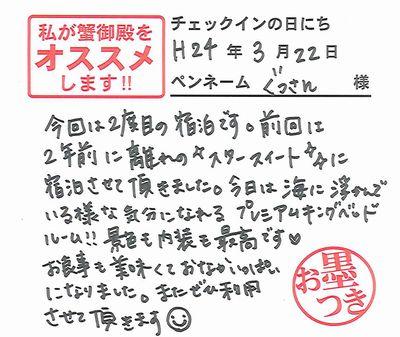 私が蟹御殿を
オススメ
します!!
チェックインの日にち
H24年3月22日
ペンネーム ぐっさん 様
今回は2度目の宿泊です。前回は
2年前に離れの☆スタースイート☆に
宿泊させて頂きました。今日は海に浮かんで
いる様な気分になれるプレミアムキングベッド
ルーム!!景色も内装も最高です♥
お食事も美味くておなかいっぱい
になりました。またぜひ利用
させて頂きます☺
お墨つき